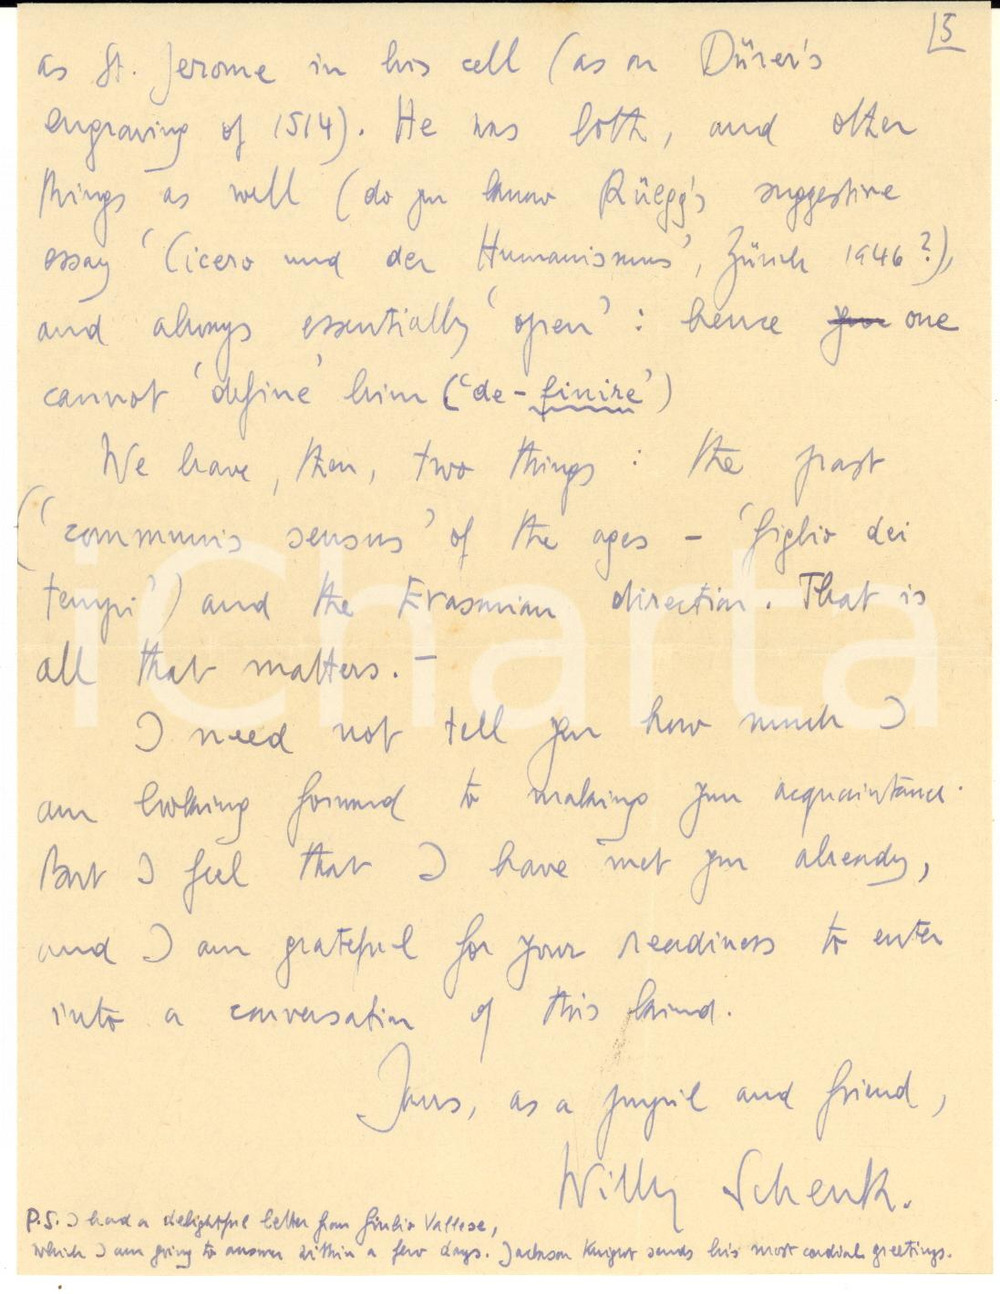 5
as St. Jerome in his cell (as on Dürer's
engraving of 1514). He was both, and other
things as well (do you know Rüegg's suggestive
essay 'Cicero und der Humanismus', Zürich 1946?),
and always essentially 'open': hence one
cannot 'define' him ('de-finire')
We have, then, two things: the past
('communis sensus' of the ages - 'figlio dei
tempi') and the Erasmian direction. That is
all that matters. -
I need not tell you how much I
am looking forward to making your acquaintance.
But I feel that I have met you already,
and I am grateful for your readiness to enter
into a conversation of this kind.
Yours, as a pupil and friend,
Willy Schenk.
P.S. I had a delightful letter from Giulio Vallese,
which I am going to answer within a few days. Jackson Knight sends his most cordial greetings.
iCharta